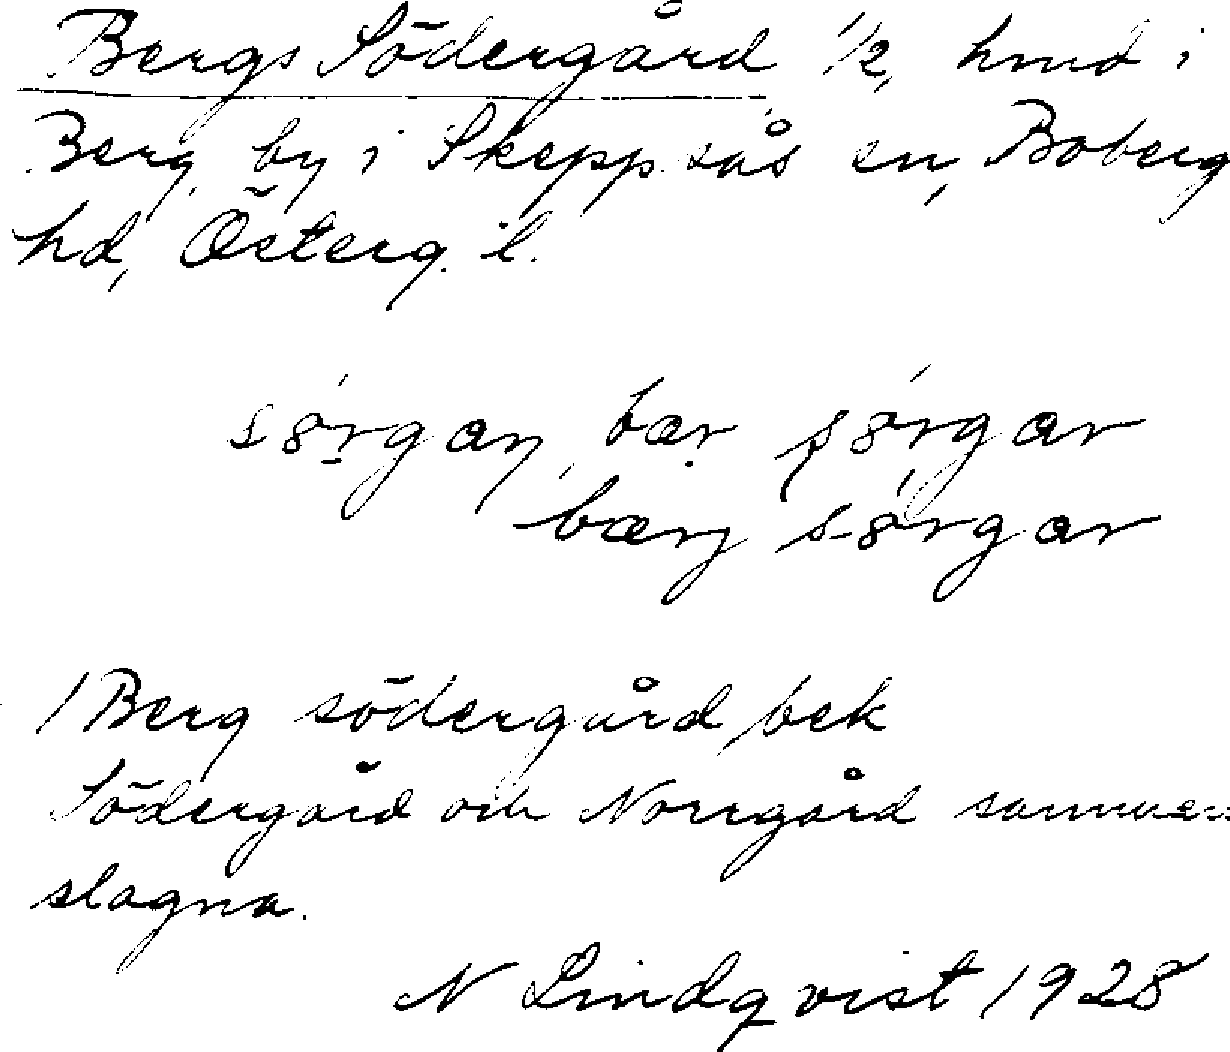 Bergs Södergård, 1/2, hmd i
Berg, by i Skeppsås sn, Boberg
hd, Österg. l.
sørgaɳ, bær ʂørgar
bærj sørgar
1 Berg södergård, bek
Södergård och Norrgård samman
slagna.
N Lindqvist 1928